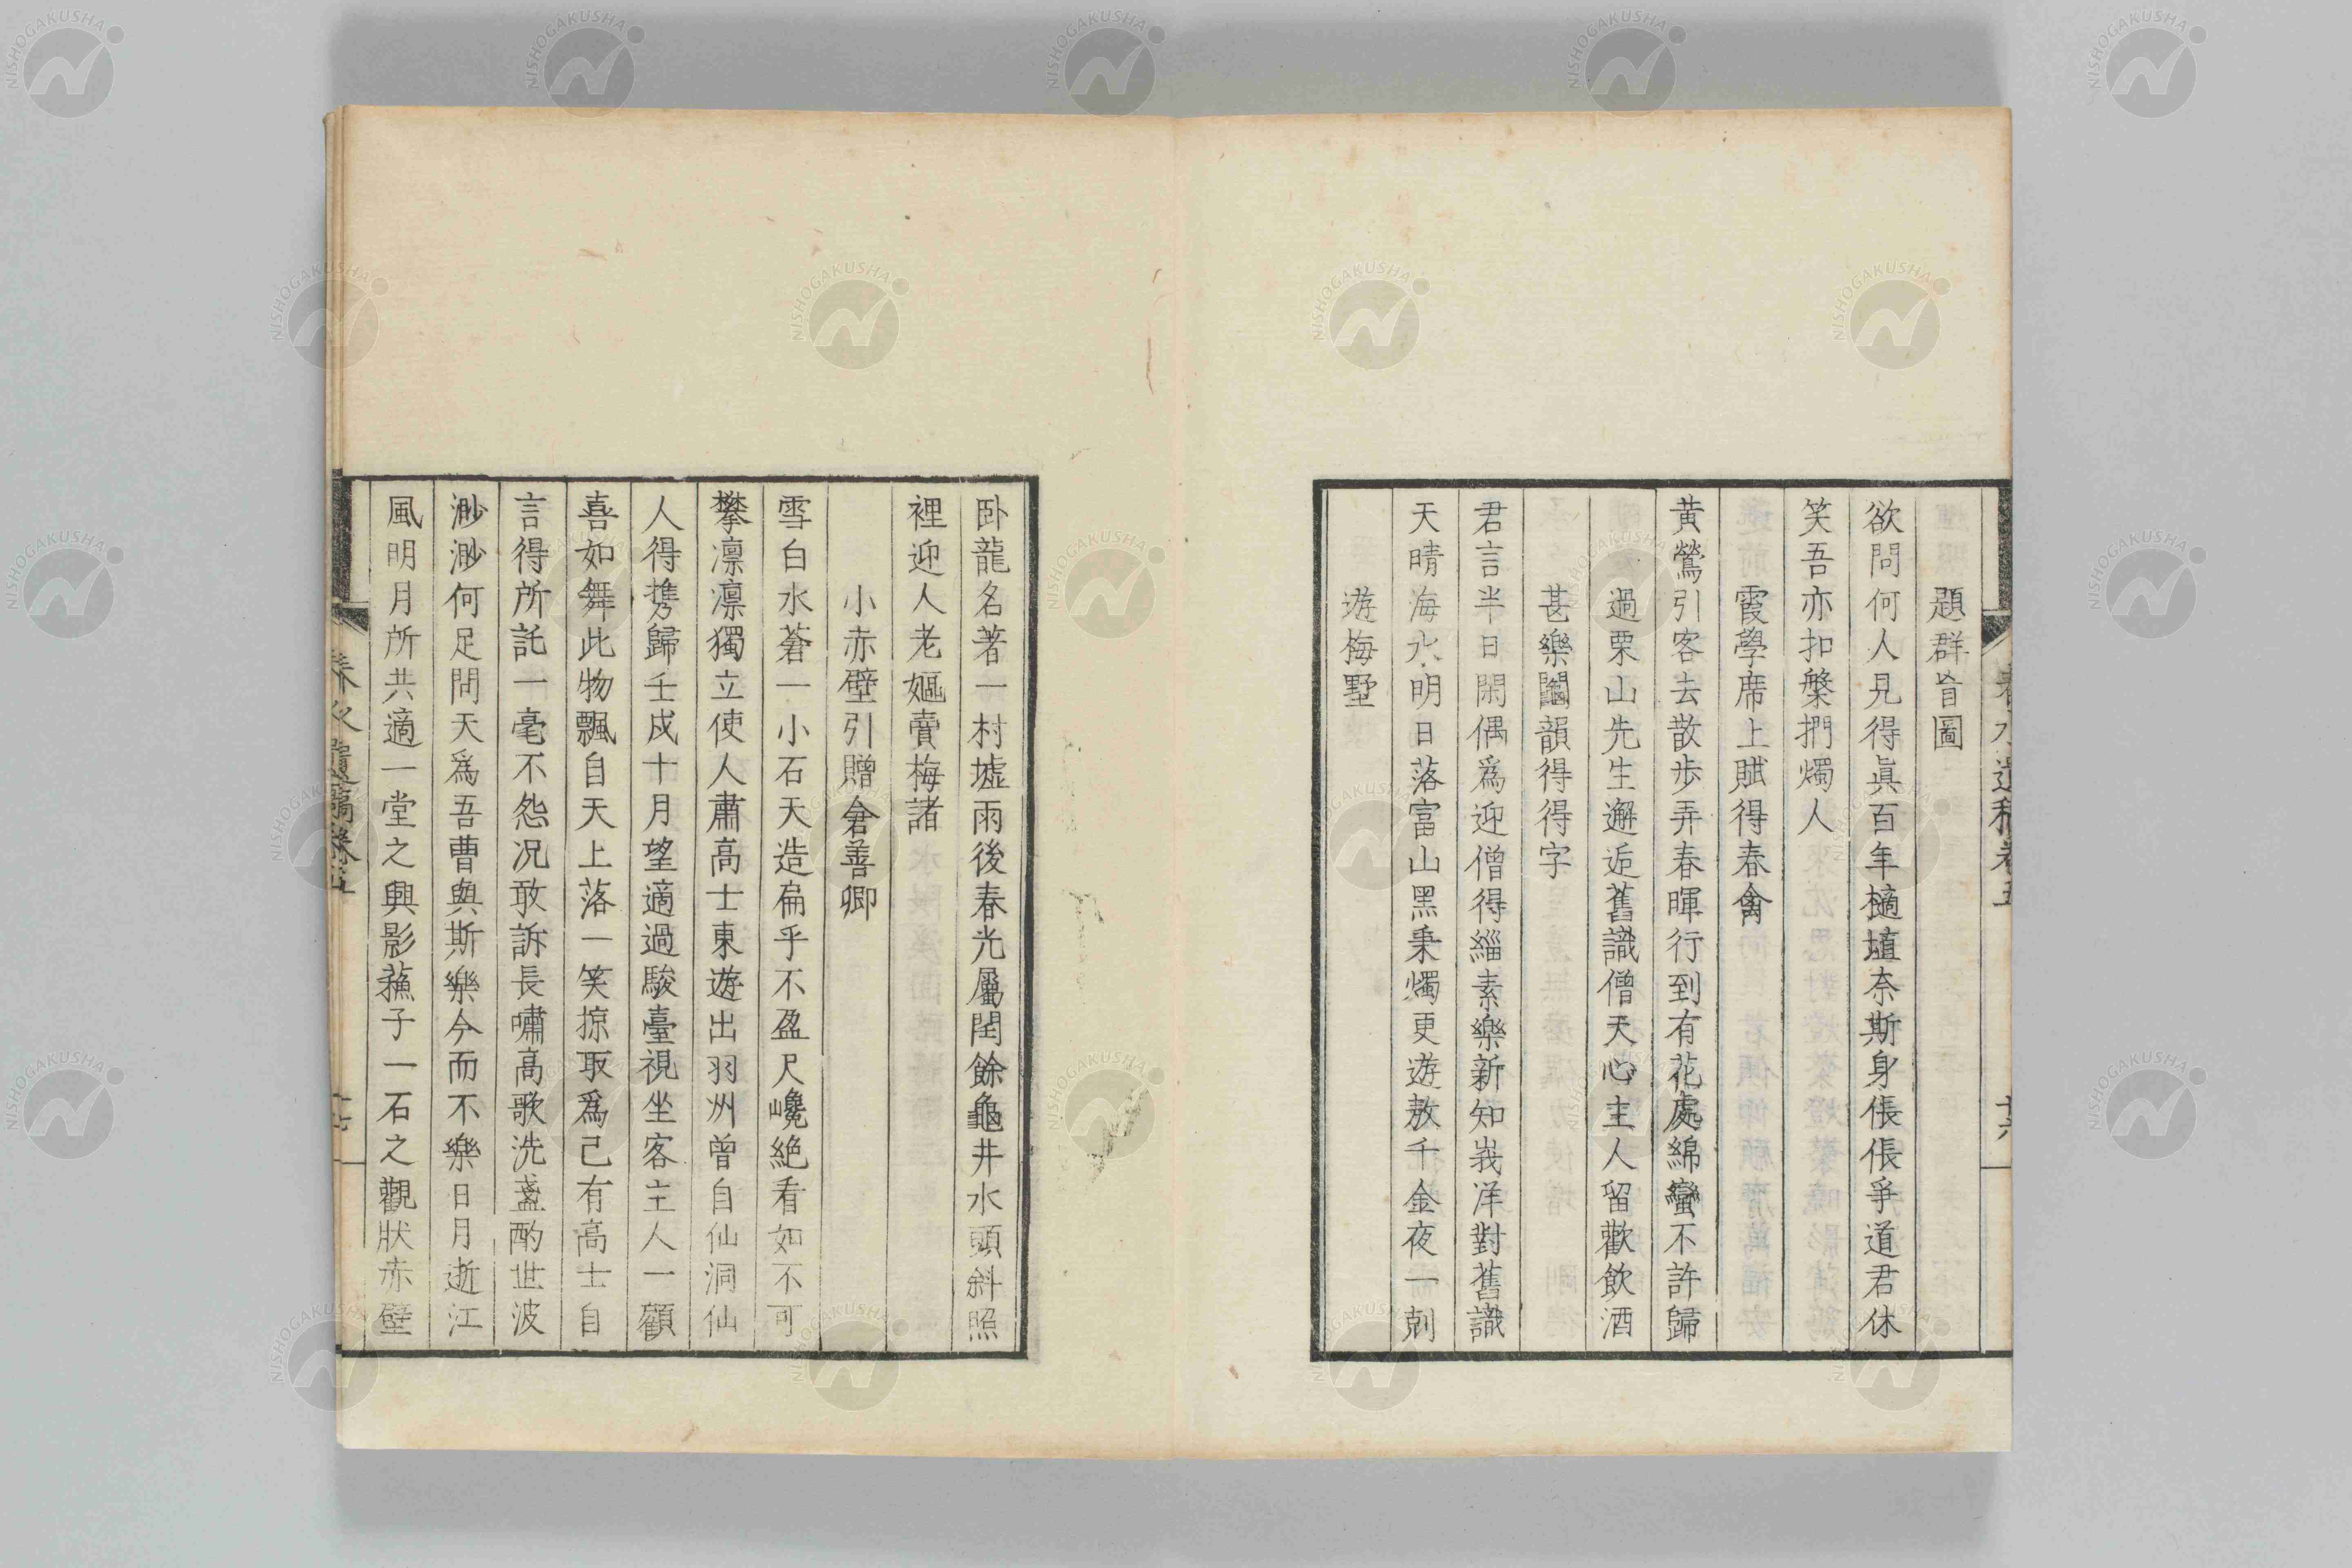 題群盲圖
欲問何人見得眞百年擿埴奈斯身倀倀爭道君休
笑吾亦扣槃捫燭人
霞學席上賦得春禽
黄鶯引客去散歩弄春暉行到有花處綿蠻不許歸
過栗山先生邂逅舊識僧天心主人留歡飲酒
甚樂鬮韻得得字
君言半日閑偶爲迎僧得緇素樂新知峩洋對舊識
天晴海水明日落富山黑秉燭更遊敖千金夜一刻
遊梅墅
臥龍名著一村墟雨後春光屬閏餘龜井水頭斜照
裡迎人老嫗賣梅諸
小赤壁引贈倉善卿
雪白水蒼一小石天造扁乎不盈尺巉絶看如不可
攀凛凛獨立使人肅高士東遊出羽洲曾自仙洞仙
人得携歸壬戌十月望適過駿臺視坐客主人一顧
喜如舞此物飄自天上落一笑掠取爲己有高士自
言得所託一毫不怨况敢訴長嘯高歌洗盞酌世波
渺渺何足問天爲吾曹與斯樂今而不樂日月逝江
風明月所共適一堂之興影蘓子一石之觀狀赤壁
NISHOGAKUSHA